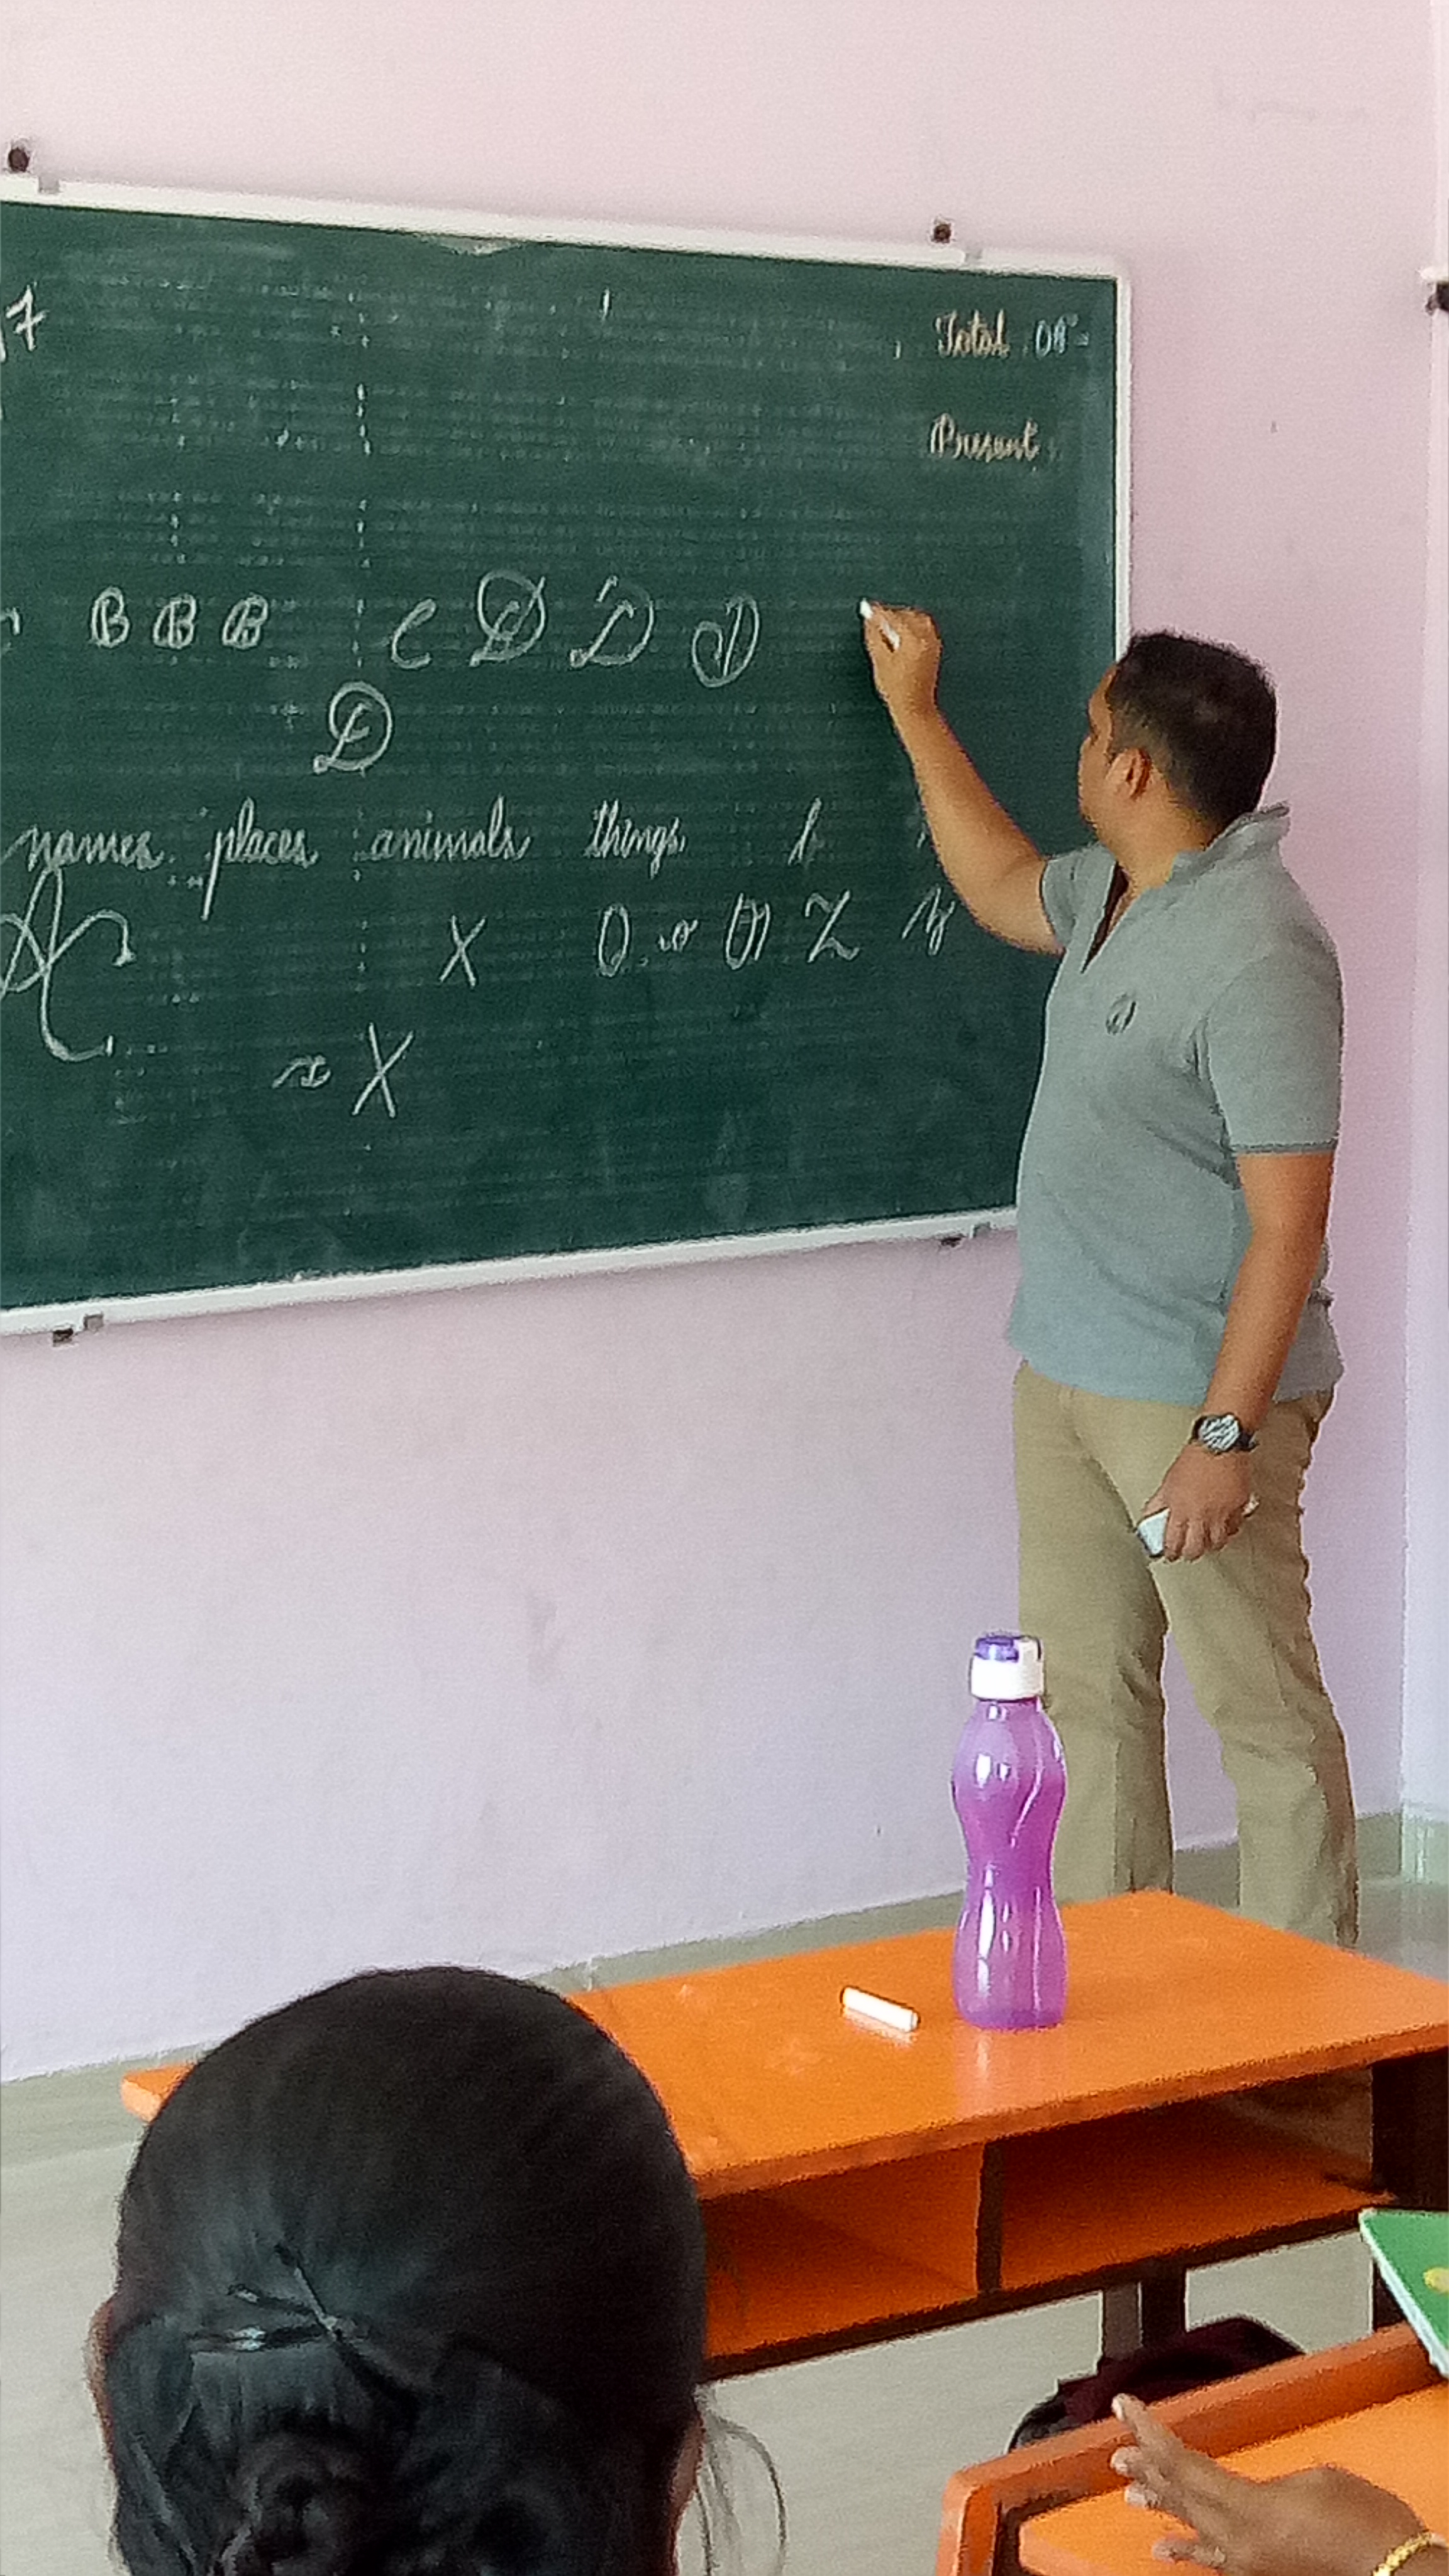 17
Total 08
Present
B B B C D D D
D
names places animals things b
X O o O Z y
x X